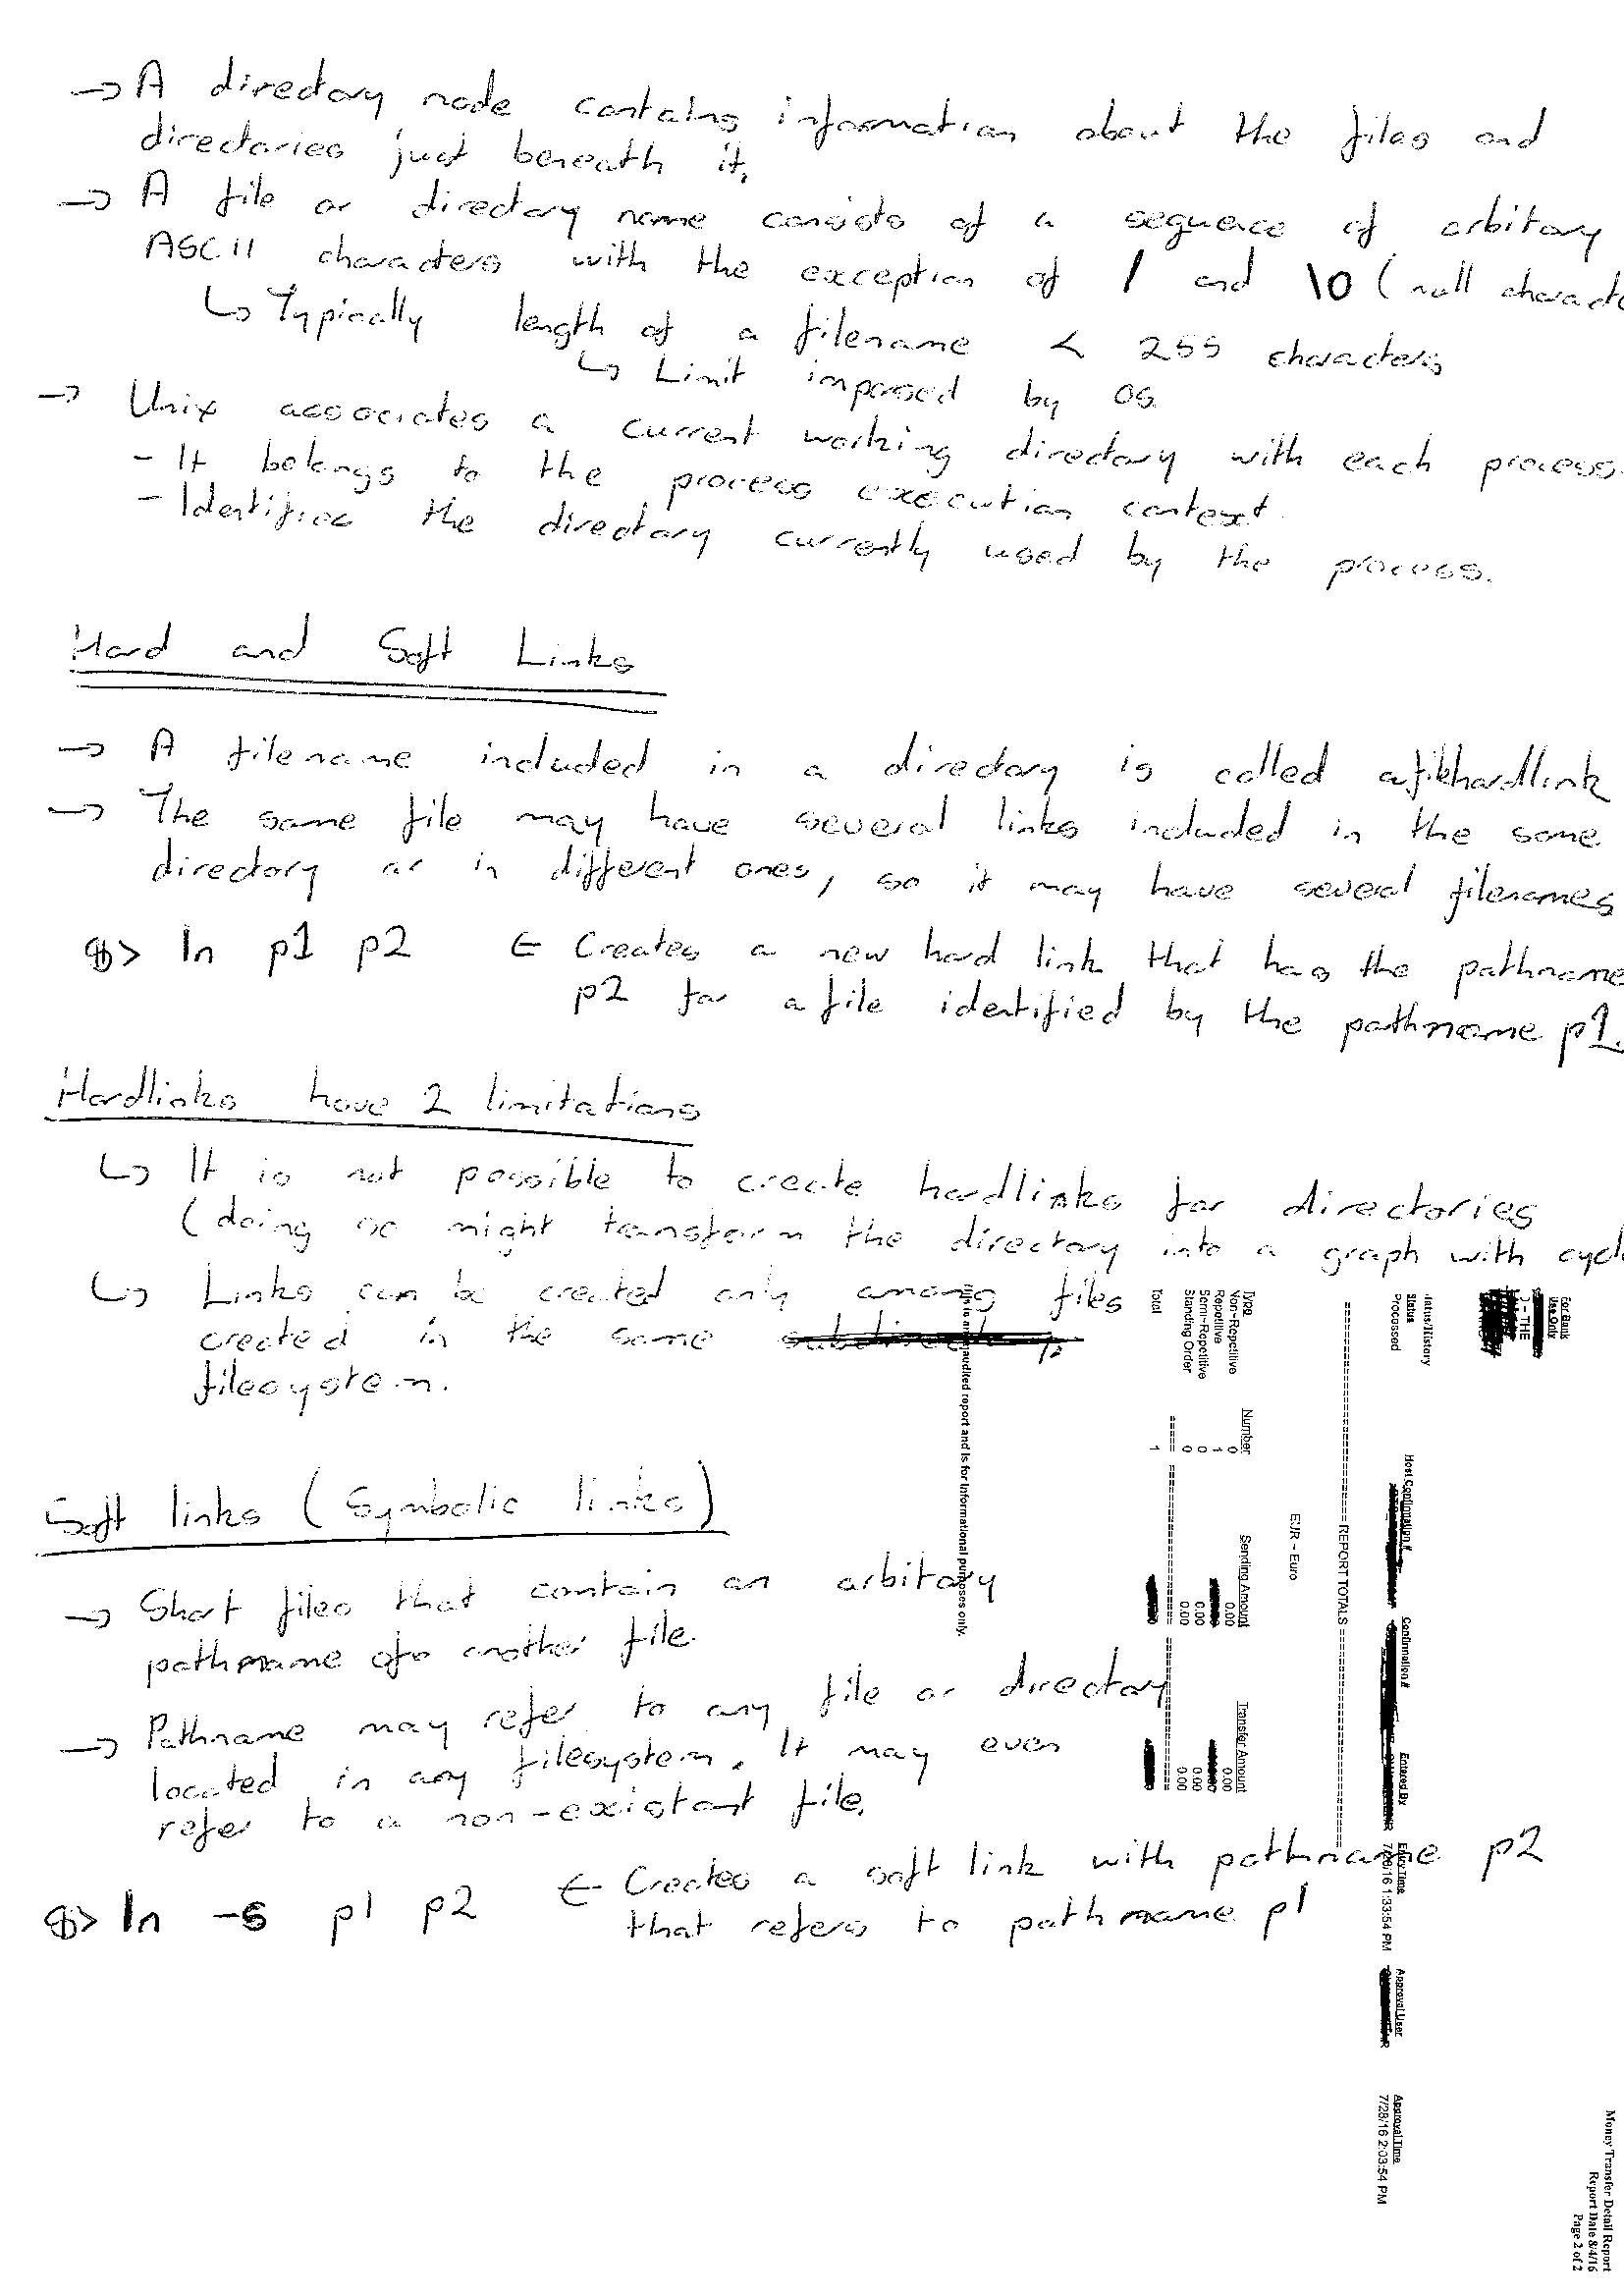 → A directory node contains information about the files and
directories just beneath it.
→ A file or directory name consists of a sequence of arbitary
ASCII characters with the exception of / and \0 (null characte
↳ Typically length of a filename < 255 characters
↳ Limit imposed by OS.
→ Unix associates a current working directory with each process.
- It belongs to the process execution context.
- Identifies the directory currently used by the process.
Hard and Soft Links
→ A filename included in a directory is called a file hardlink
→ The same file may have several links included in the same
directory or in different ones, so it may have several filenames
$> ln p1 p2 ← Creates a new hard link that has the pathname
p2 for a file identified by the pathname p1.
Hardlinks have 2 limitations
↳ It is not possible to create hardlinks for directories
(doing so might transform the directory into a graph with cycl
↳ Links can be created only among files
created in the same
filesystem.
Soft links (Symbolic links)
→ Short files that contain an arbitary
pathname of another file.
→ Pathname may refer to any file or directory
located in any filesystem. It may even
refer to a non-existant file.
$> ln -s p1 p2 ← Creates a soft link with pathname p2
that refers to pathname p1
Money Transfer Detail Report
Report Date 8/4/16
Page 2 of 2
For Bank
Use Only
- THE
Status/History
Status Host Confirmation # Confirmation # Entered By Entry Time Approval User Approval Time
Processed 1:33:54 PM 7/28/16 2:03:54 PM
REPORT TOTALS
EUR - Euro
Type Number Sending Amount Transfer Amount
Non-Repetitive 0 0.00 0.00
Repetitive 1
Semi-Repetitive 0 0.00 0.00
Standing Order 0 0.00 0.00
Total 1
audited report and is for informational purposes only.